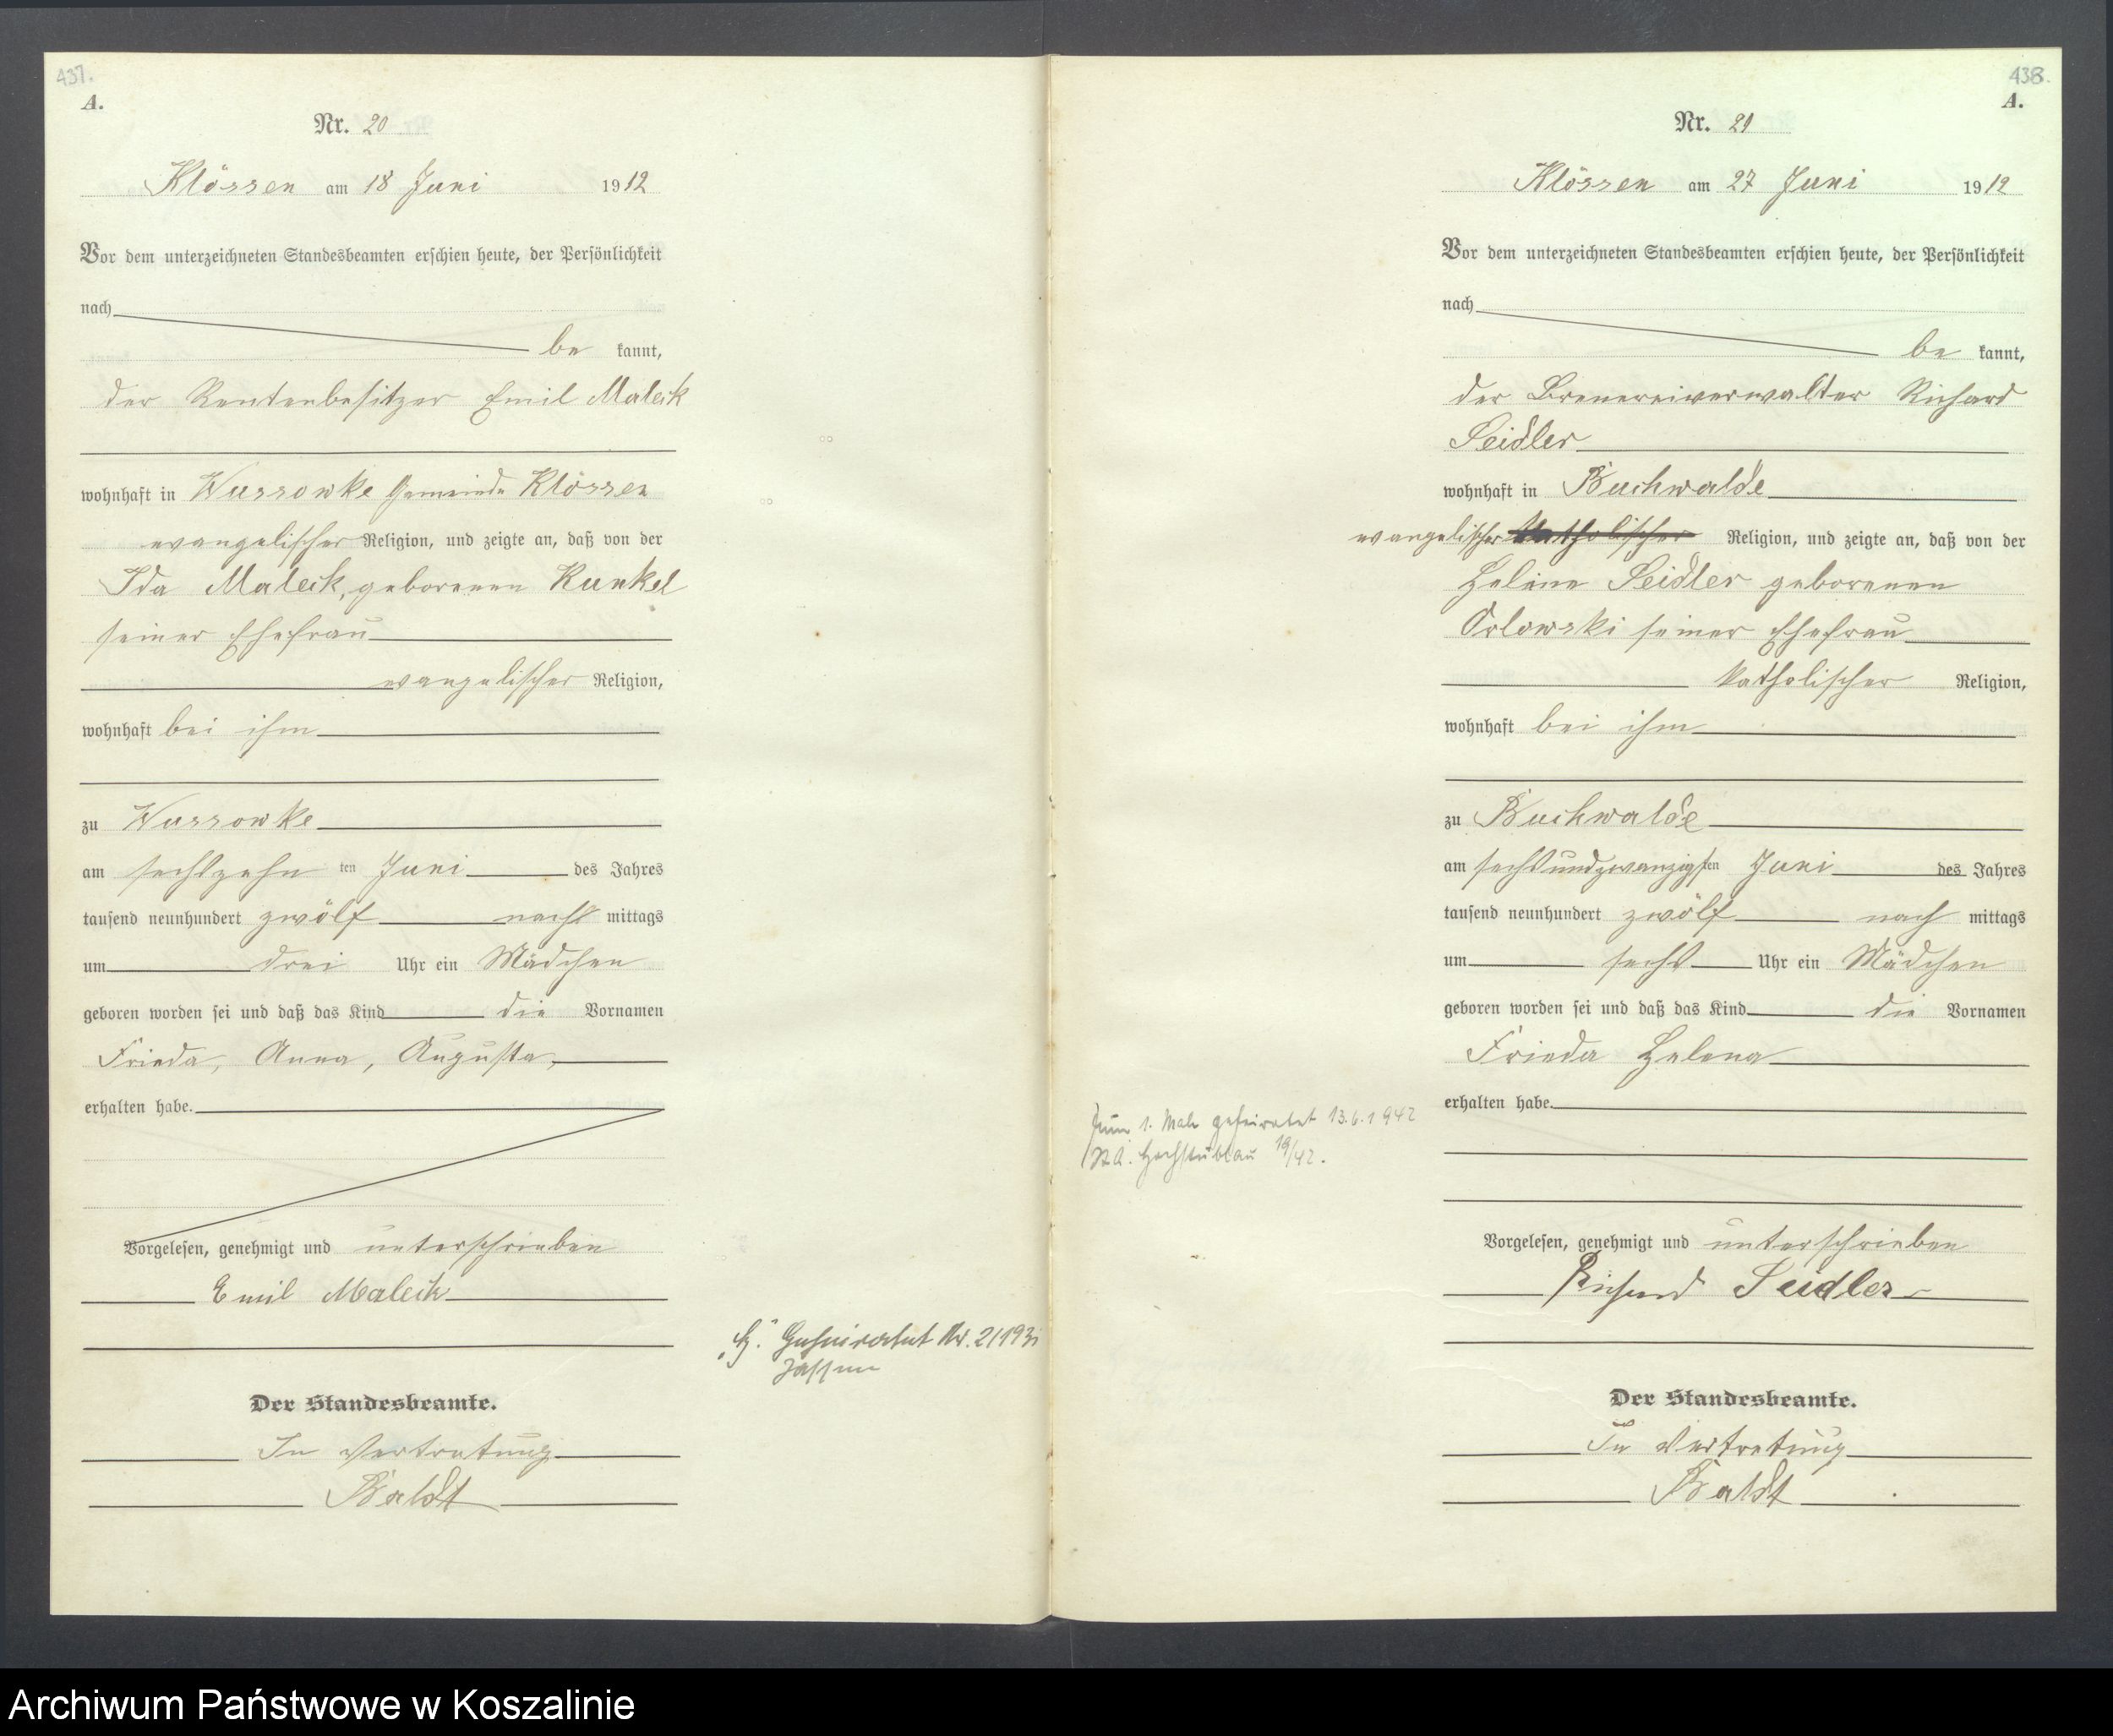 437.
A.
Nr. 20
Klössen am 18 Juni 1912
Vor dem unterzeichneten Standesbeamten erschien heute, der Persönlichkeit
nach
be kannt,
der Rentenbesitzer Emil Maleck
wohnhaft in Wussowke Gemeinde Klössen
evangelischer Religion, und zeigte an, daß von der
Ida Maleck, geborenen Kunkel
seiner Ehefrau
evangelischer Religion,
wohnhaft bei ihm
zu Wussowke
am sechszehn ten Juni des Jahres
tausend neunhundert zwölf nach mittags
um drei Uhr ein Mädchen
geboren worden sei und daß das Kind die Vornamen
Frieda, Anna, Augusta,
erhalten habe.
Vorgelesen, genehmigt und unterschrieben
Emil Maleck
Geheiratet Nr. 2/193
Jassen
Der Standesbeamte.
In Vertretung
Baldt
438.
A.
Nr. 21
Klössen am 27 Juni 1912
Vor dem unterzeichneten Standesbeamten erschien heute, der Persönlichkeit
nach
be kannt,
der Brenereiverwalter Richard
Seidler
wohnhaft in Buchwalde
evangelischer katholischer Religion, und zeigte an, daß von der
Heline Seidler geborenen
Orlowski seiner Ehefrau
katholischer Religion,
wohnhaft bei ihm
zu Buchwalde
am sechsundzwanzigsten Juni des Jahres
tausend neunhundert zwölf nach mittags
um sechs Uhr ein Mädchen
geboren worden sei und daß das Kind die Vornamen
Frieda Helena
erhalten habe.
Zum 1. Male geheiratet 13.6.1942
St.A. Hochstüblau 19/42.
Vorgelesen, genehmigt und unterschrieben
Richard Seidler
Der Standesbeamte.
In Vertretung
Baldt
Archiwum Państwowe w Koszalinie